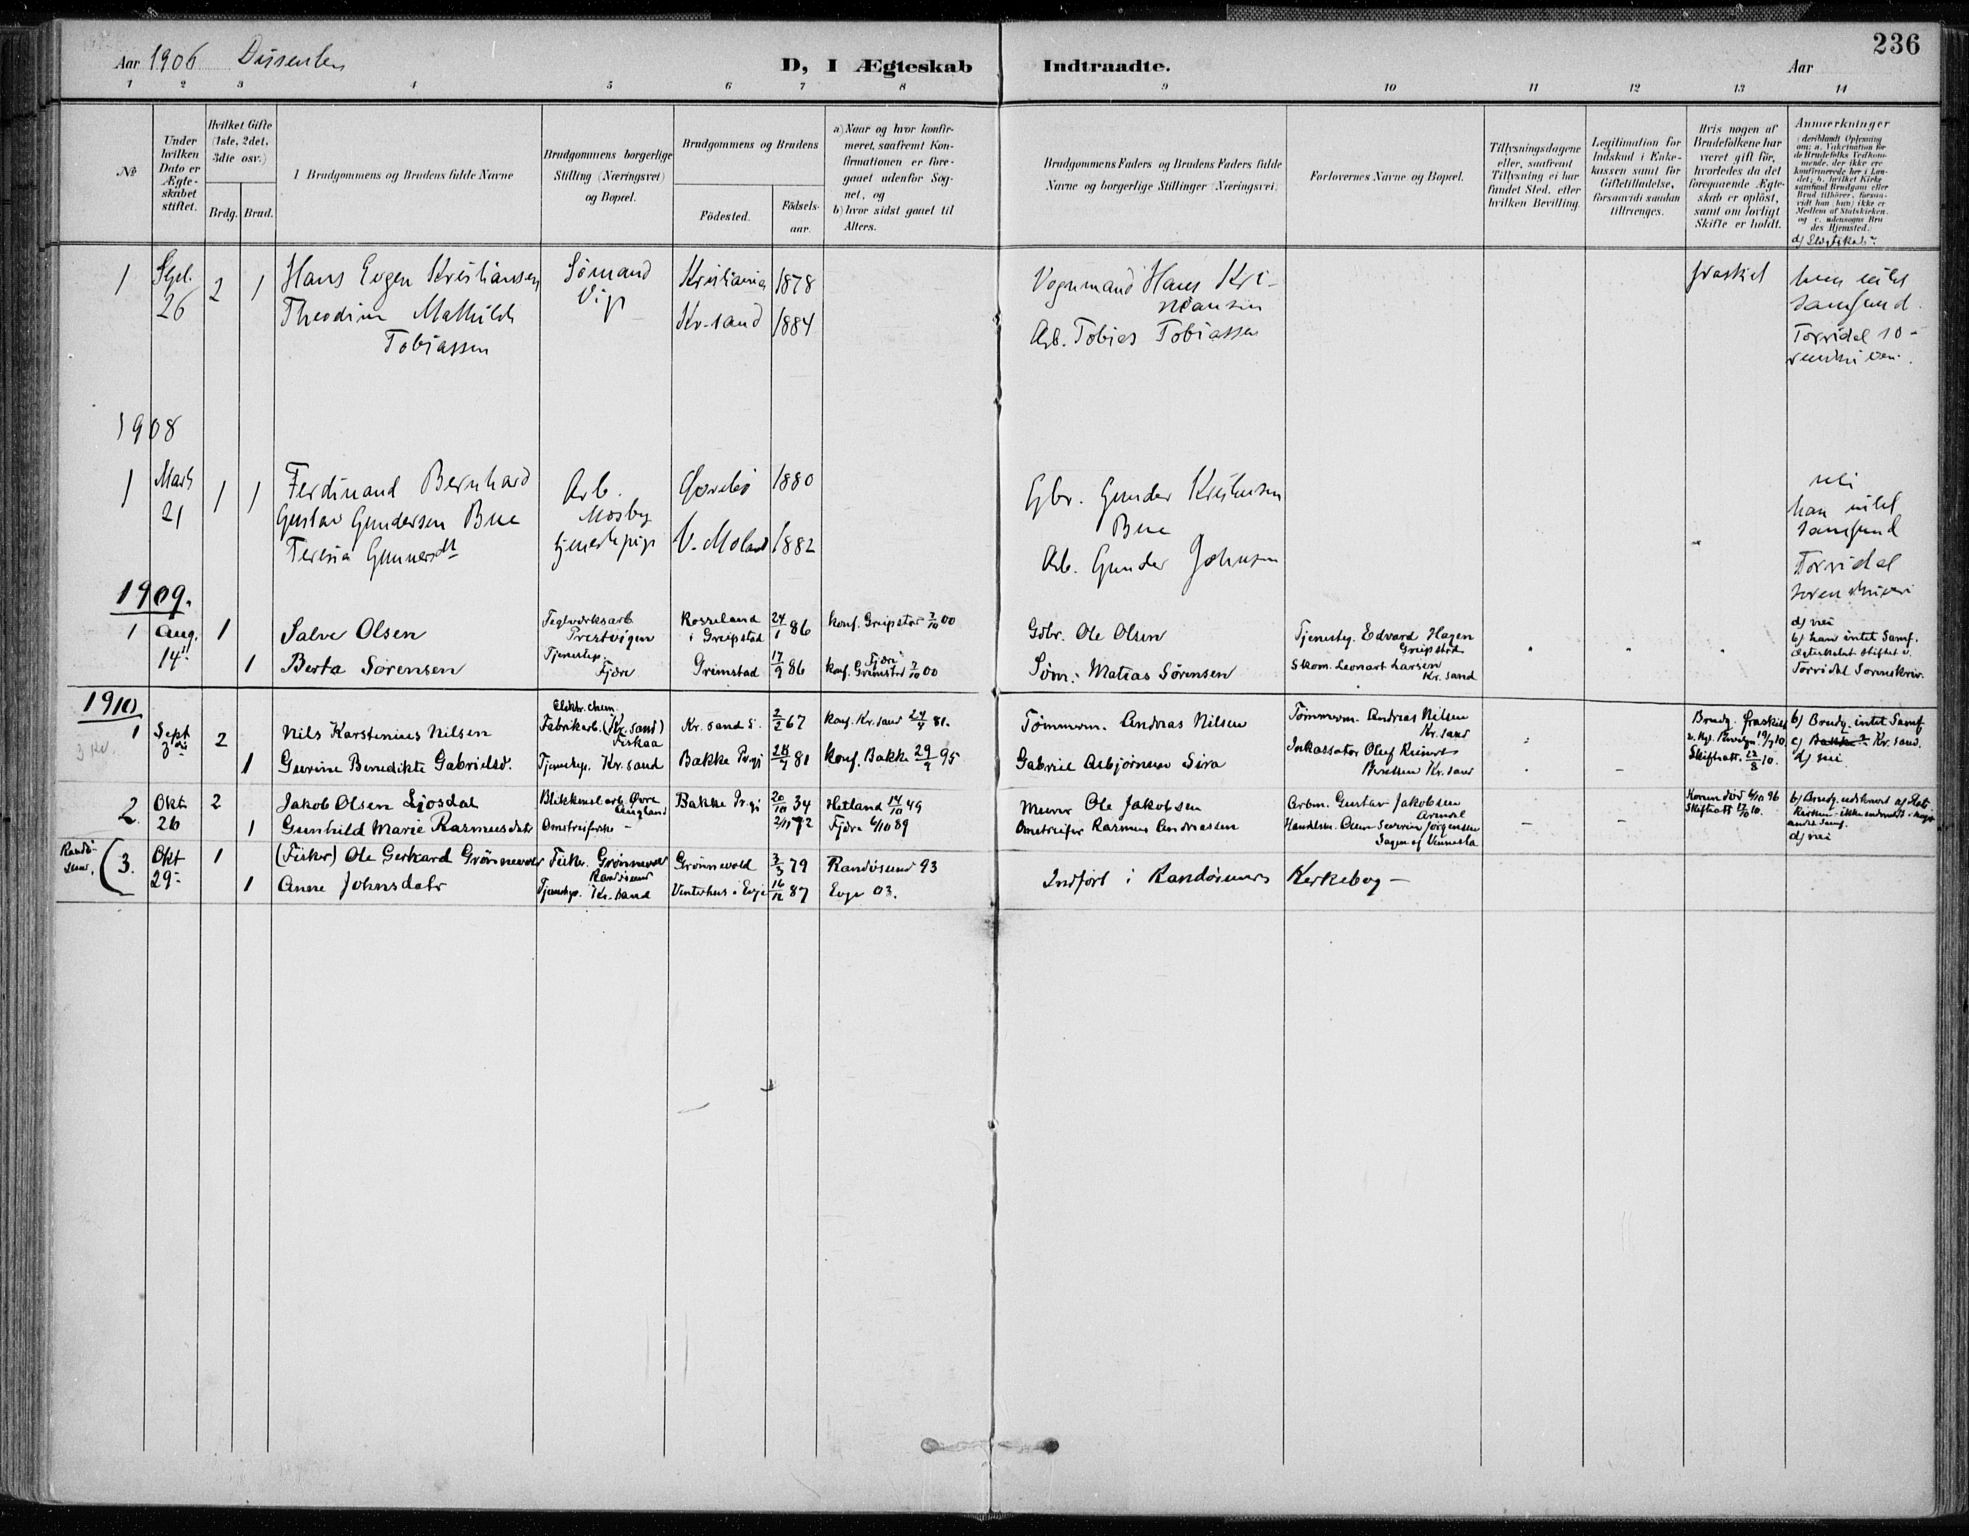 236
Aar 1906 Dissenter
D, I Ægteskab Indtraadte.
Aar
1 2 3 4 5 6 7 8 9 10 11 12 13 14
№
Under hvilken Dato er Ægteskabet stiftet.
Hvilket Gifte (1ste, 2det, 3die osv.)
Brdg. Brud.
Brudgommens og Brudens fulde Navne
Brudgommens borgerlige Stilling (Næringsvei) og Bopæl.
Brudgommens og Brudens
Fødested.
Fødselsaar.
a) Naar og hvor konfirmeret, saafremt Konfirmationen er foregaaet udenfor Sognet, og
b) hvor sidst gaaet til Alters.
Brudgommens Faders og Brudens Faders fulde Navne og borgerlige Stillinger (Næringsvei).
Forlovernes Navne og Bopæl.
Tillysningsdagene eller, saafremt Tillysning ei har fundet Sted, efter hvilken Bevilling.
Legitimation for Indskud i Enkekassen samt for Giftetilladelse, forsaavidt saadan tiltrænges.
Hvis nogen af Brudefolkene har været gift før, hvorledes da det foregaaende Ægteskab er opløst, samt om lovligt Skifte er holdt.
Anmerkninger
d) Slegtskab:
1 Sept. 26 2 1 Hans Evgen Kristiansen Sömand Kristiania 1878 Vognmand Hans Kristiansen fraskilt
Vige
Theodine Mathilde Tobiassen Kr-sand 1884 Arb. Tobias Tobiassen
han intet samfund.
Torridal
1908
1 Marts 21 1 1 Ferdinand Bernhard Gustav Gundersen Bue Arb. Mosby Øvrebö 1880 Gbr. Gunder Kristensen Bue
Teresia Gunnersdt tjenestepige V. Moland 1882 Arb. Gunder Johnsen
nei
han intet samfund
Torridal
1909.
1 Aug. 14 1 Salve Olsen Teglverksarb. Prestvigen Rosseland i Greipstad 24/1 86 konf. Greipstad 7/10 00 Gbr. Ole Olsen Tjenestg. Edvard Hagen Greipstad
1 Berta Sørensen Tjenestep. Fjære Grimstad 17/9 86 konf. Fjære Grimstad 7/10 00 Søm. Matias Sørensen Skom. Leonart Larsen Kr.sand
d) nei
b) han intet Samf.
Ægteskabet stiftet v. Torridal Sorenskriv.
1910
1 Sept 3die 2 Nils Karstenius Nilsen Elektr. chem. Fabrikarb. (Kr. sand) Fiskaa Kr. sand S. 2/2 67 konf. Kr. sand 24/4 81. Tømmerm. Andreas Nilsen Tømmerm. Andreas Nilsen Kr. sand
1 Gurine Benedikte Gabrielsd. Tjenestep. Kr. sand Bakke Prgj 81 konf. Bakke 29/9 95 Gabriel Asbjørnsen Sira Inkassator Oluf Reinert Berntsen Kr. sand
Brudg. fraskilt 19/7 10. Skifteatt. 22/8 10.
b) Brudg. intet Samf.
c) Bakke Kr. sand.
d) nei
2. Okt 26 2 Jakob Olsen Ljosdal Blikkensl. arb. Øvre Augland Bakke Prgj 20/10 34 Hetland 14/10 49 Murer Ole Jakobsen Arbm. Gustav Jakobsen Arendal
1 Gunhild Marie Rasmusdatr Omstreiferske - 2/11 72 Fjære 6/10 89 Omstreifer Rasmus Andreassen Handelsm. Severin Jørgensen Vennesla
Konen död 6/10 96 Skifteatt 17/10 10.
d) nei
Randøsund. 3. Okt 29. 1 (Fisker) Ole Gerhard Grønnevold Fisker. Grønnevold Randøsund Grønnevold 3/3 79 Randøsund 93
1 Anne Johnsdatr Tjenestep. Kr. sand Vinterhus i Evje 16/12 87 Evje 03.
Indført i Randøsunds Kirkebog -